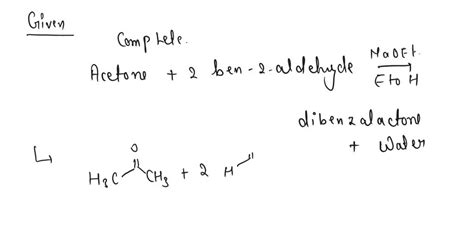 Given
Complete.
Acetone + 2 ben-2-aldehyde NaOEt. EtoH
dibenzalactone
+ Water
O
H3C CH3 + 2 H